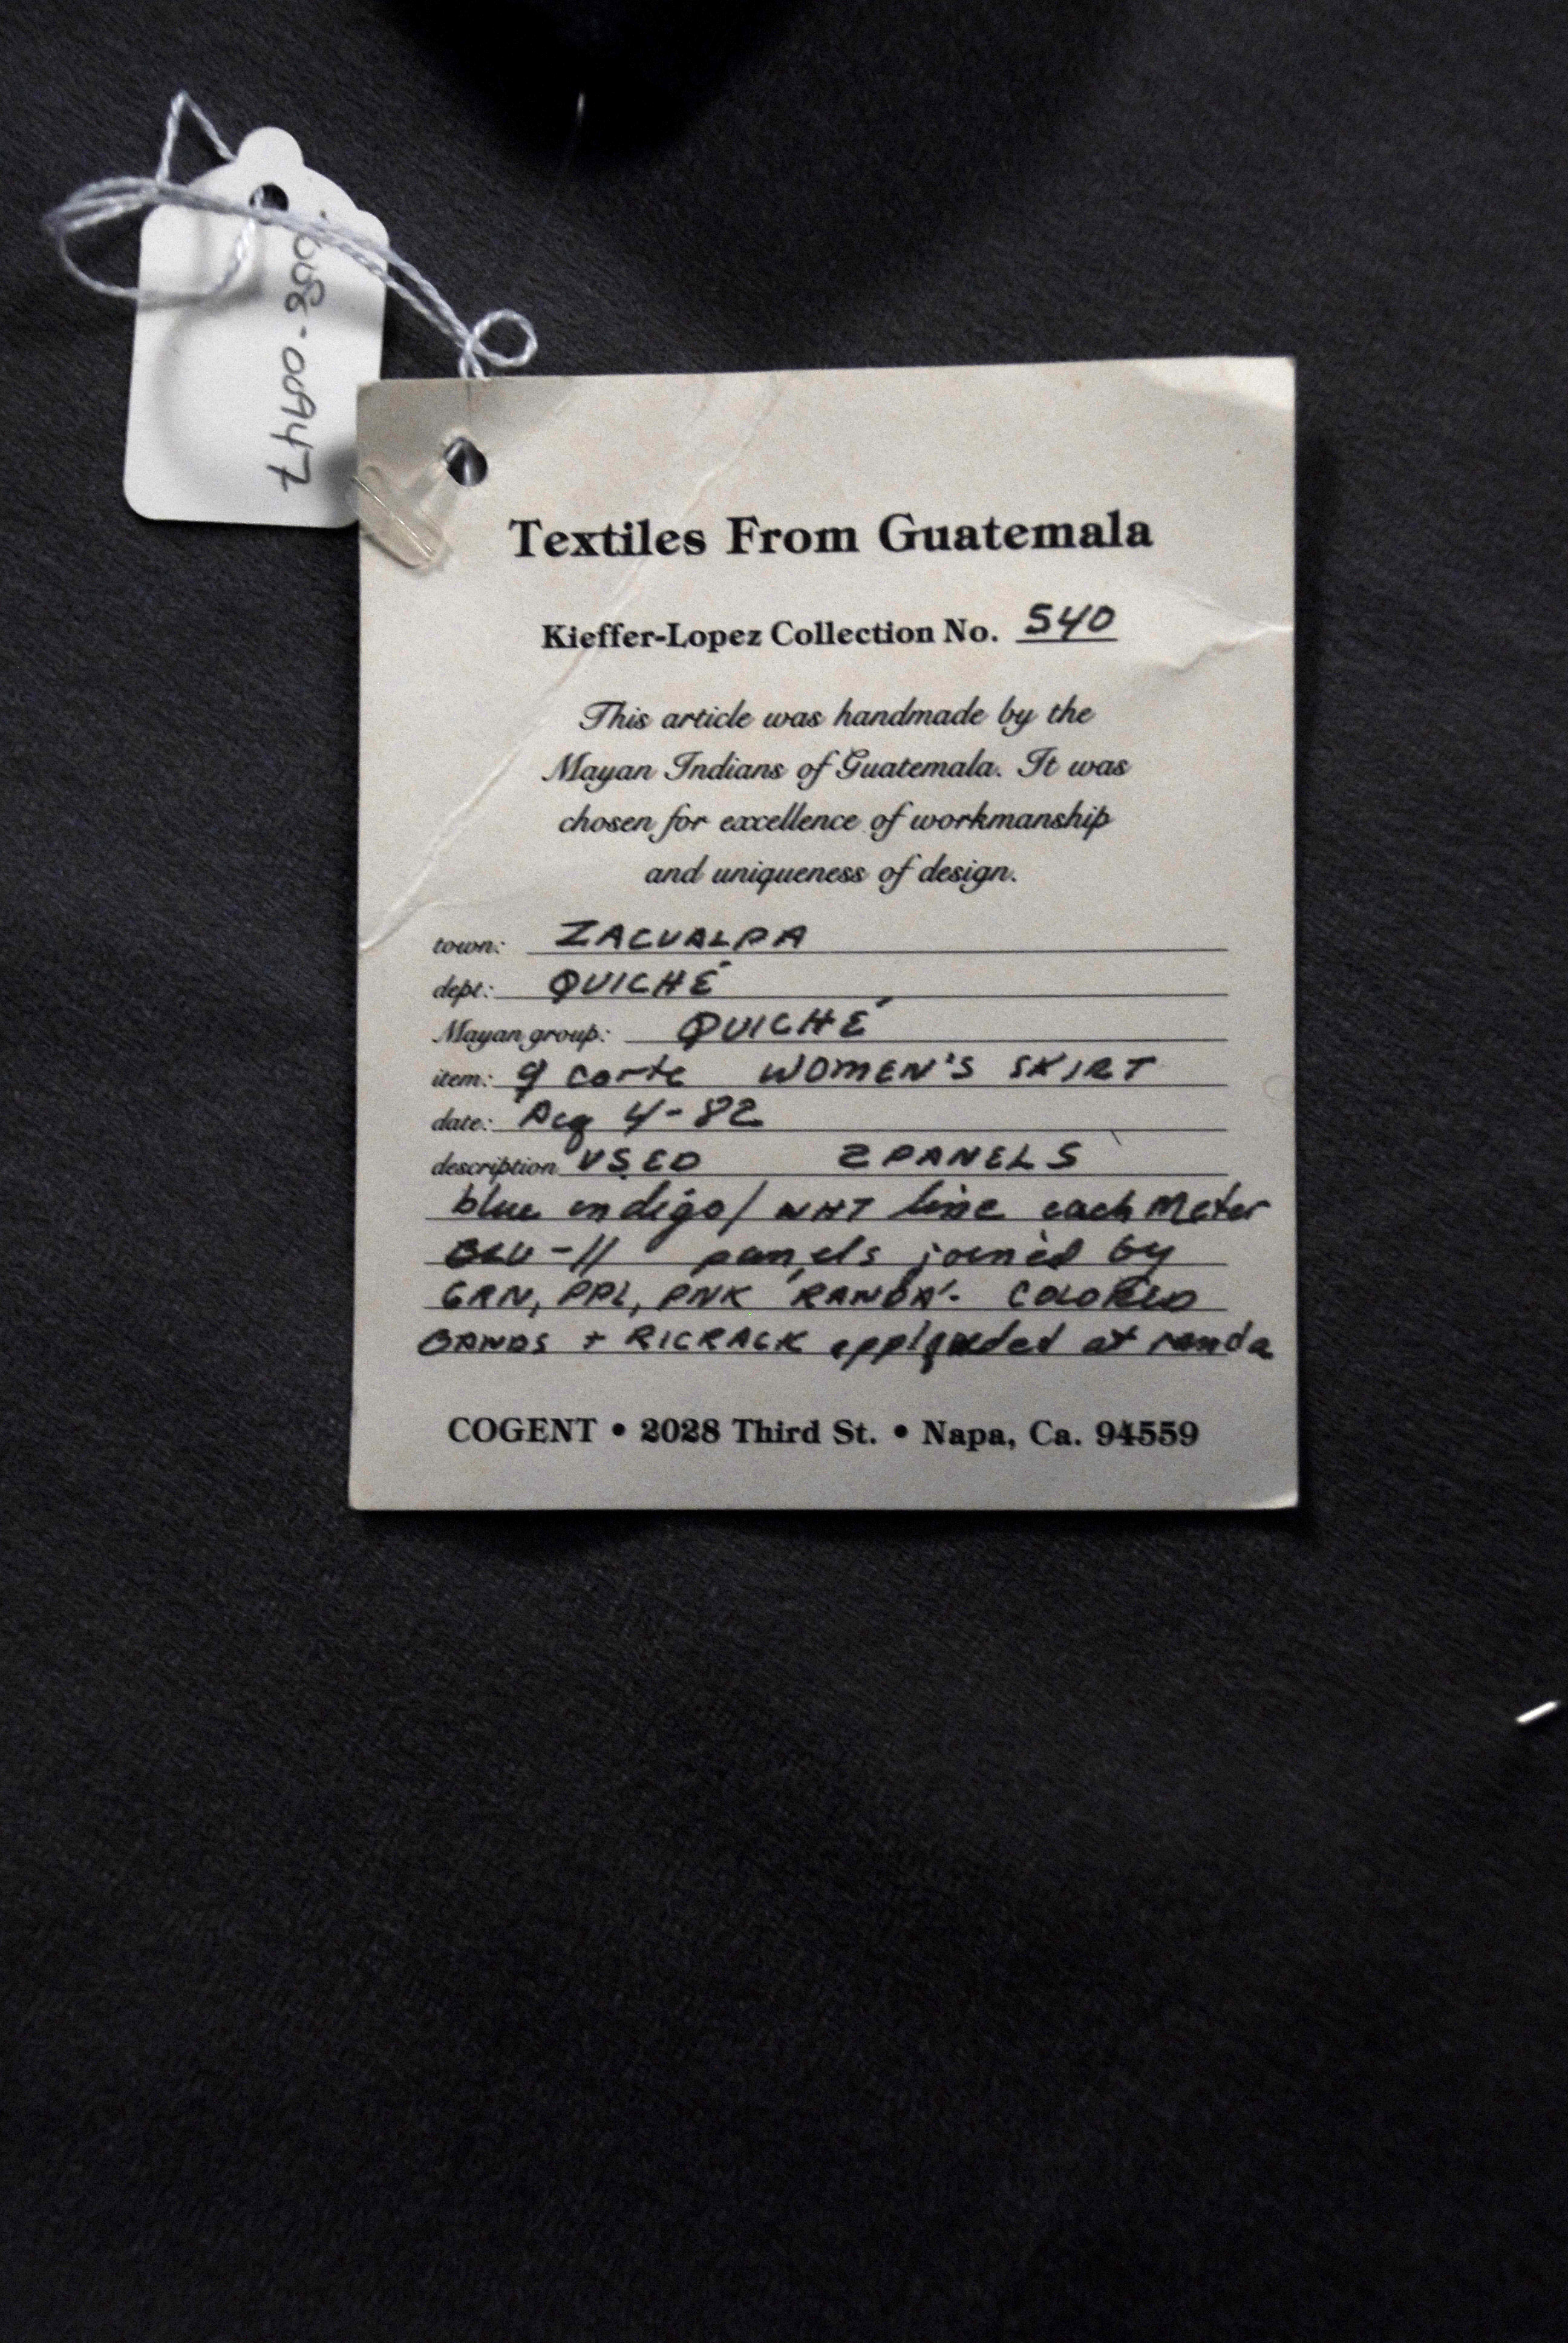 -00947
Textiles From Guatemala
Kieffer-Lopez Collection No. 540
This article was handmade by the
Mayan Indians of Guatemala. It was
chosen for excellence of workmanship
and uniqueness of design.
town: ZACUALPA
dept: QUICHÉ
Mayan group: QUICHÉ
item: corte WOMEN'S SKIRT
date: Acq 4-82
description USED 2 PANELS
blue indigo/WHT line each meter
BLU-11 panels joined by
GRN, PPL, PNK 'RANDA'. COLORED
BANDS + RICRACK at randa
COGENT • 2028 Third St. • Napa, Ca. 94559